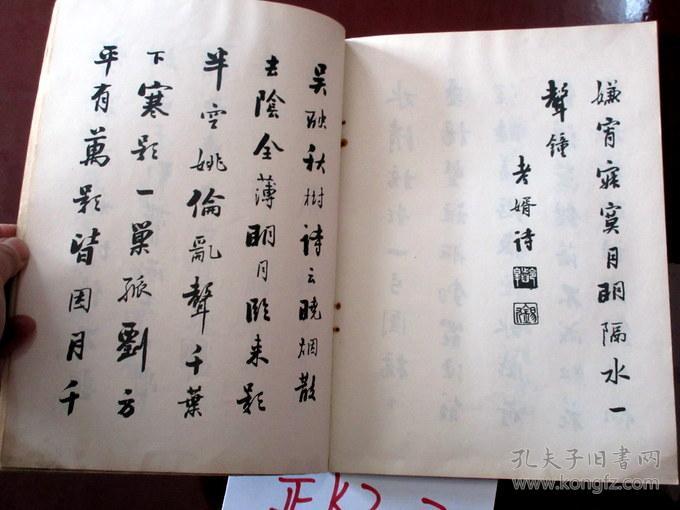 嫌宵寂寞月明隔水一
聲鐘
老婿詩
吴融秋樹詩云曉烟散
去陰全薄明月臨来影
半空姚倫亂聲千葉
下寒影一巢孤劉方
平有萬影皆因月千
孔夫子旧书网
www.kongfz.com